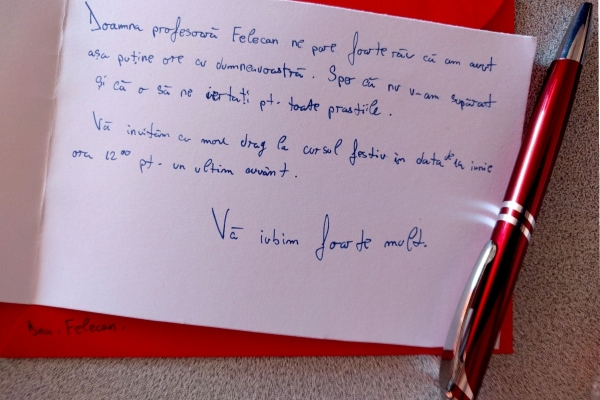 Doamna profesoară Felecan ne pare foarte rău că am avut
așa puține ore cu dumneavoastră. Sper că nu v-am supărat
și că o să ne iertați pt. toate prostiile.
Vă invităm cu mare drag la cursul festiv în data de iunie
ora 12⁰⁰ pt. un ultim cuvânt.
Vă iubim foarte mult.
Felecan